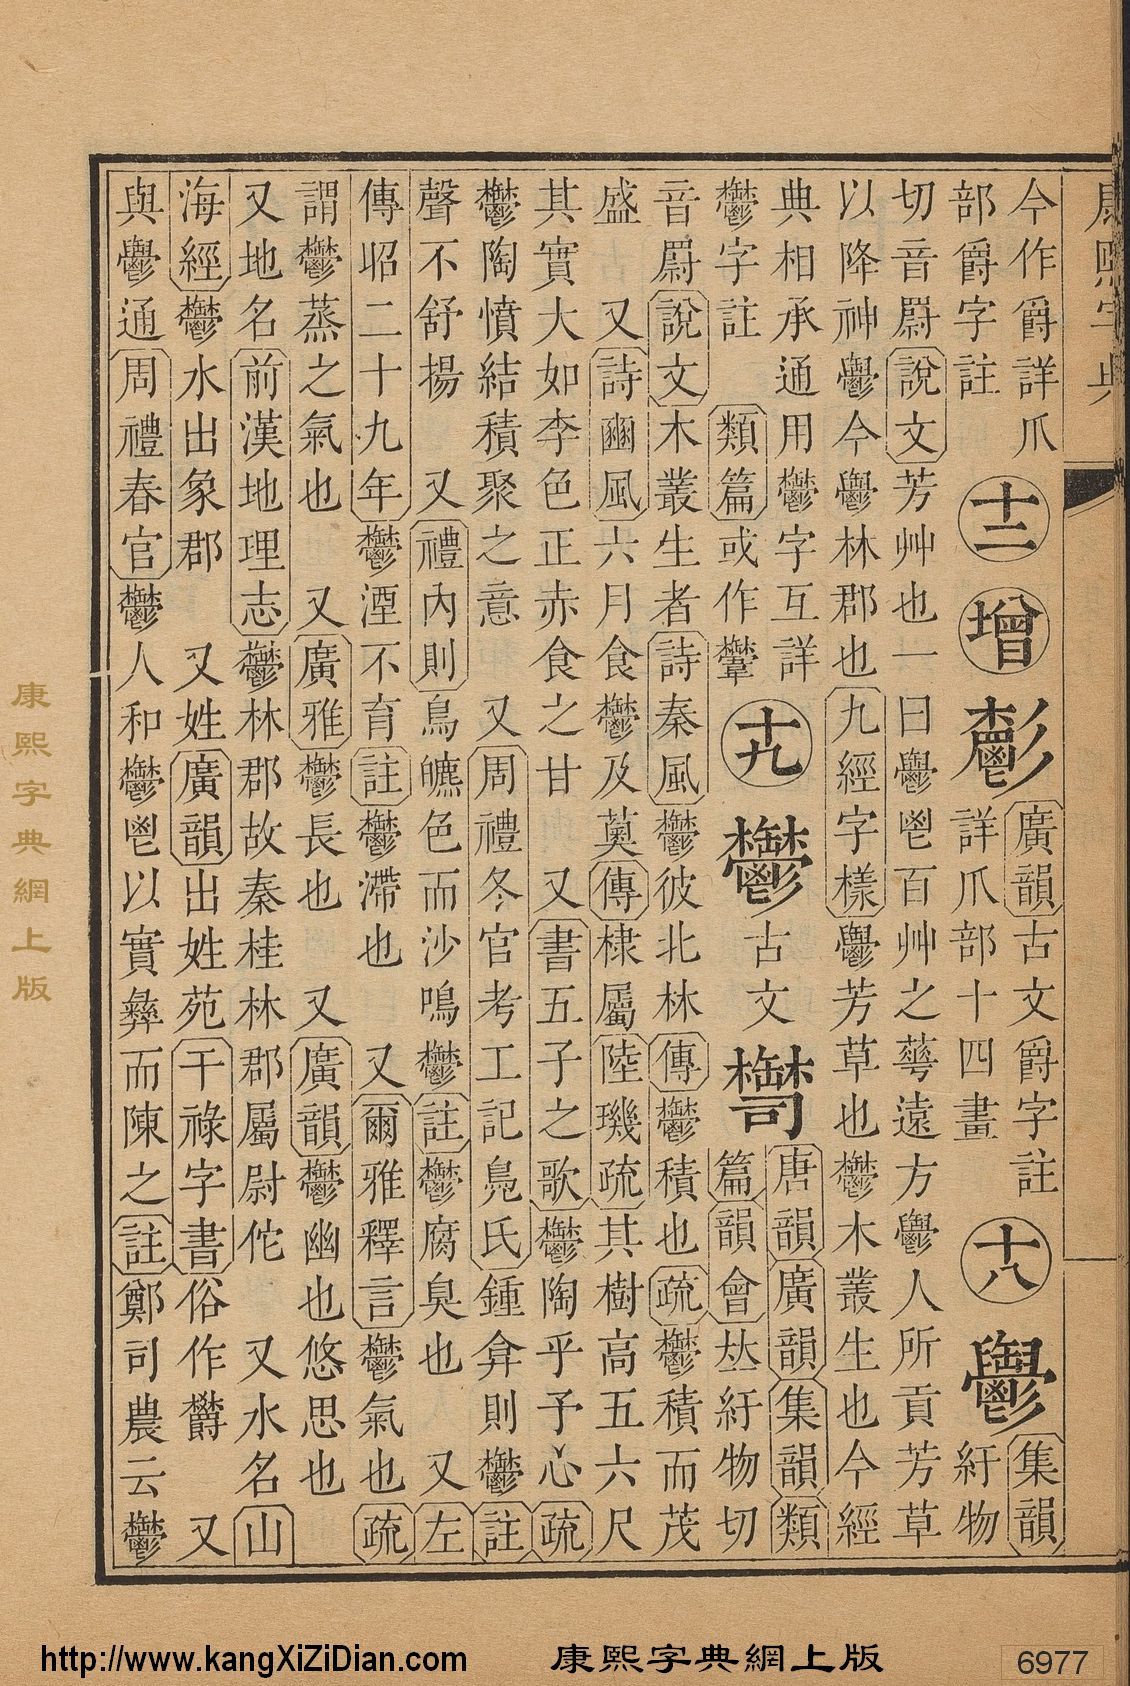 康熙字典
今作爵詳爪
部爵字註
十二
增
廣韻古文爵字註
詳爪部十四畫
十八
𩰪
集韻
紆物
切音尉說文芳艸也一曰𩰪鬯百艸之華遠方𩰪人所貢芳草
以降神𩰪今𩰪林郡也九經字樣𩰪芳草也鬱木叢生也今經
典相承通用鬱字互詳
鬱字註
類篇或作
十九
鬱
古文
唐韻廣韻集韻類
篇韻會𠀤紆物切
音尉說文木叢生者詩秦風鬱彼北林傳鬱積也疏鬱積而茂
盛 又詩豳風六月食鬱及薁傳棣屬陸璣疏其樹高五六尺
其實大如李色正赤食之甘 又書五子之歌鬱陶乎予心疏
鬱陶憤結積聚之意 又周禮冬官考工記鳧氏鍾弇則鬱註
聲不舒揚 又禮內則鳥皫色而沙鳴鬱註鬱腐臭也 又左
傳昭二十九年鬱湮不育註鬱滯也 又爾雅釋言鬱氣也疏
謂鬱蒸之氣也 又廣雅鬱長也 又廣韻鬱幽也悠思也
又地名前漢地理志鬱林郡故秦桂林郡屬尉佗 又水名山
海經鬱水出象郡 又姓廣韻出姓苑干祿字書俗作欝 又
與𩰪通周禮春官鬱人和鬱鬯以實彝而陳之註鄭司農云鬱
康熙字典網上版
http://www.kangXiZiDian.com
康熙字典網上版
6977